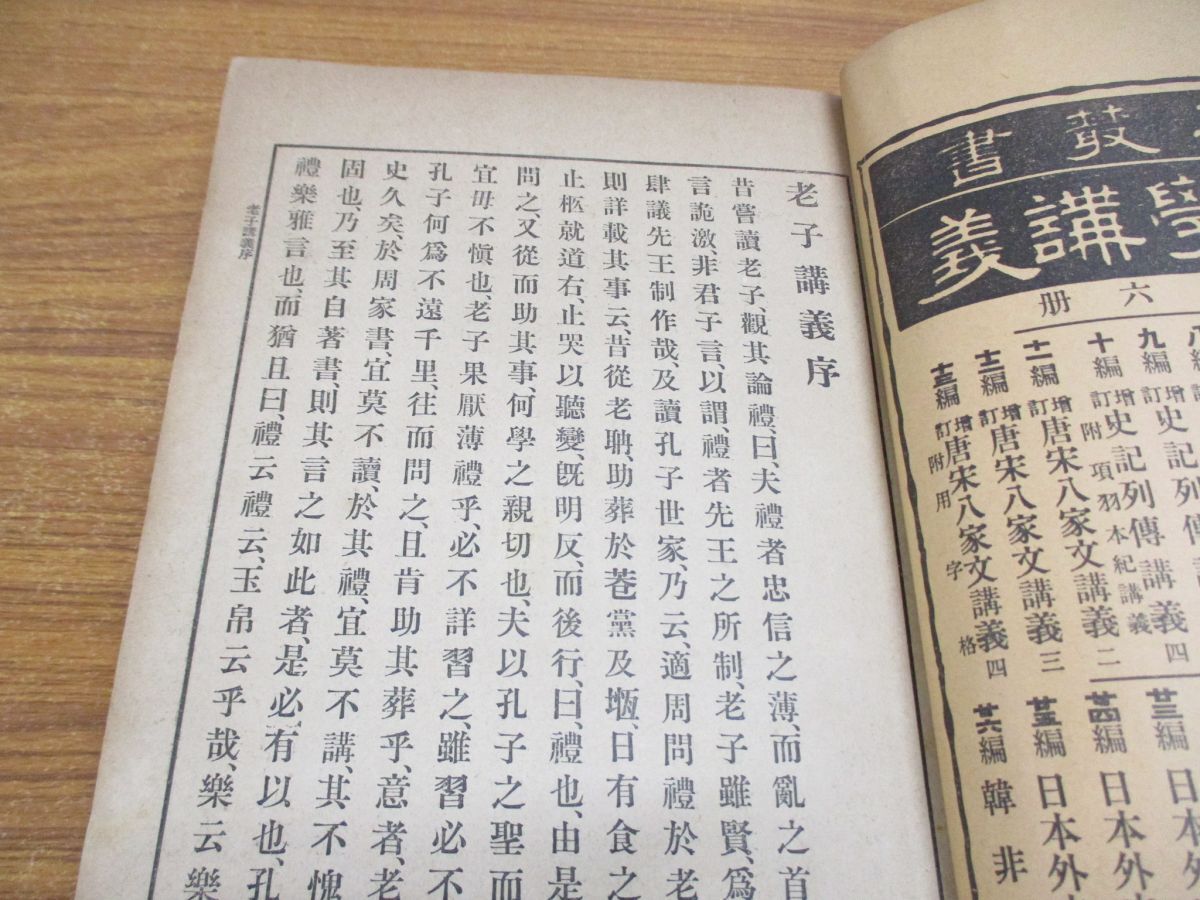 老子講義序
昔嘗讀老子、觀其論禮、曰、夫禮者忠信之薄、而亂之首
言詭激、非君子言、以謂、禮者先王之所制、老子雖賢、爲
肆議先王制作哉、及讀孔子世家、乃云、適周問禮於老
則詳載其事云、昔從老聃、助葬於巷黨及堩、日有食之
止柩就道右、止哭以聽變、既明反、而後行、曰、禮也、由是
問之、又從而助其事、何學之親切也、夫以孔子之聖而
宜毋不愼也、老子果厭薄禮乎、必不詳習之、雖習必不
孔子何爲不遠千里、往而問之、且肯助其葬乎、意者、老
史久矣、於周家書、宜莫不讀、於其禮、宜莫不講、其不愧
固也、乃至其自著書、則其言之如此者、是必有以也、孔
禮樂雅言也、而猶且曰、禮云禮云、玉帛云乎哉、樂云樂
老子講義序
叢書
學講義
六册
九編 增訂 史記列傳講義 四
十編 增訂 史記列傳講義 附項羽本紀講義 二
十一編 增訂 唐宋八家文講義 三
十二編 增訂 唐宋八家文講義 三
十三編 增訂 唐宋八家文講義 附用字格 四
廿三編 日本外
廿四編 日本外
廿五編 日本外
廿六編 韓非